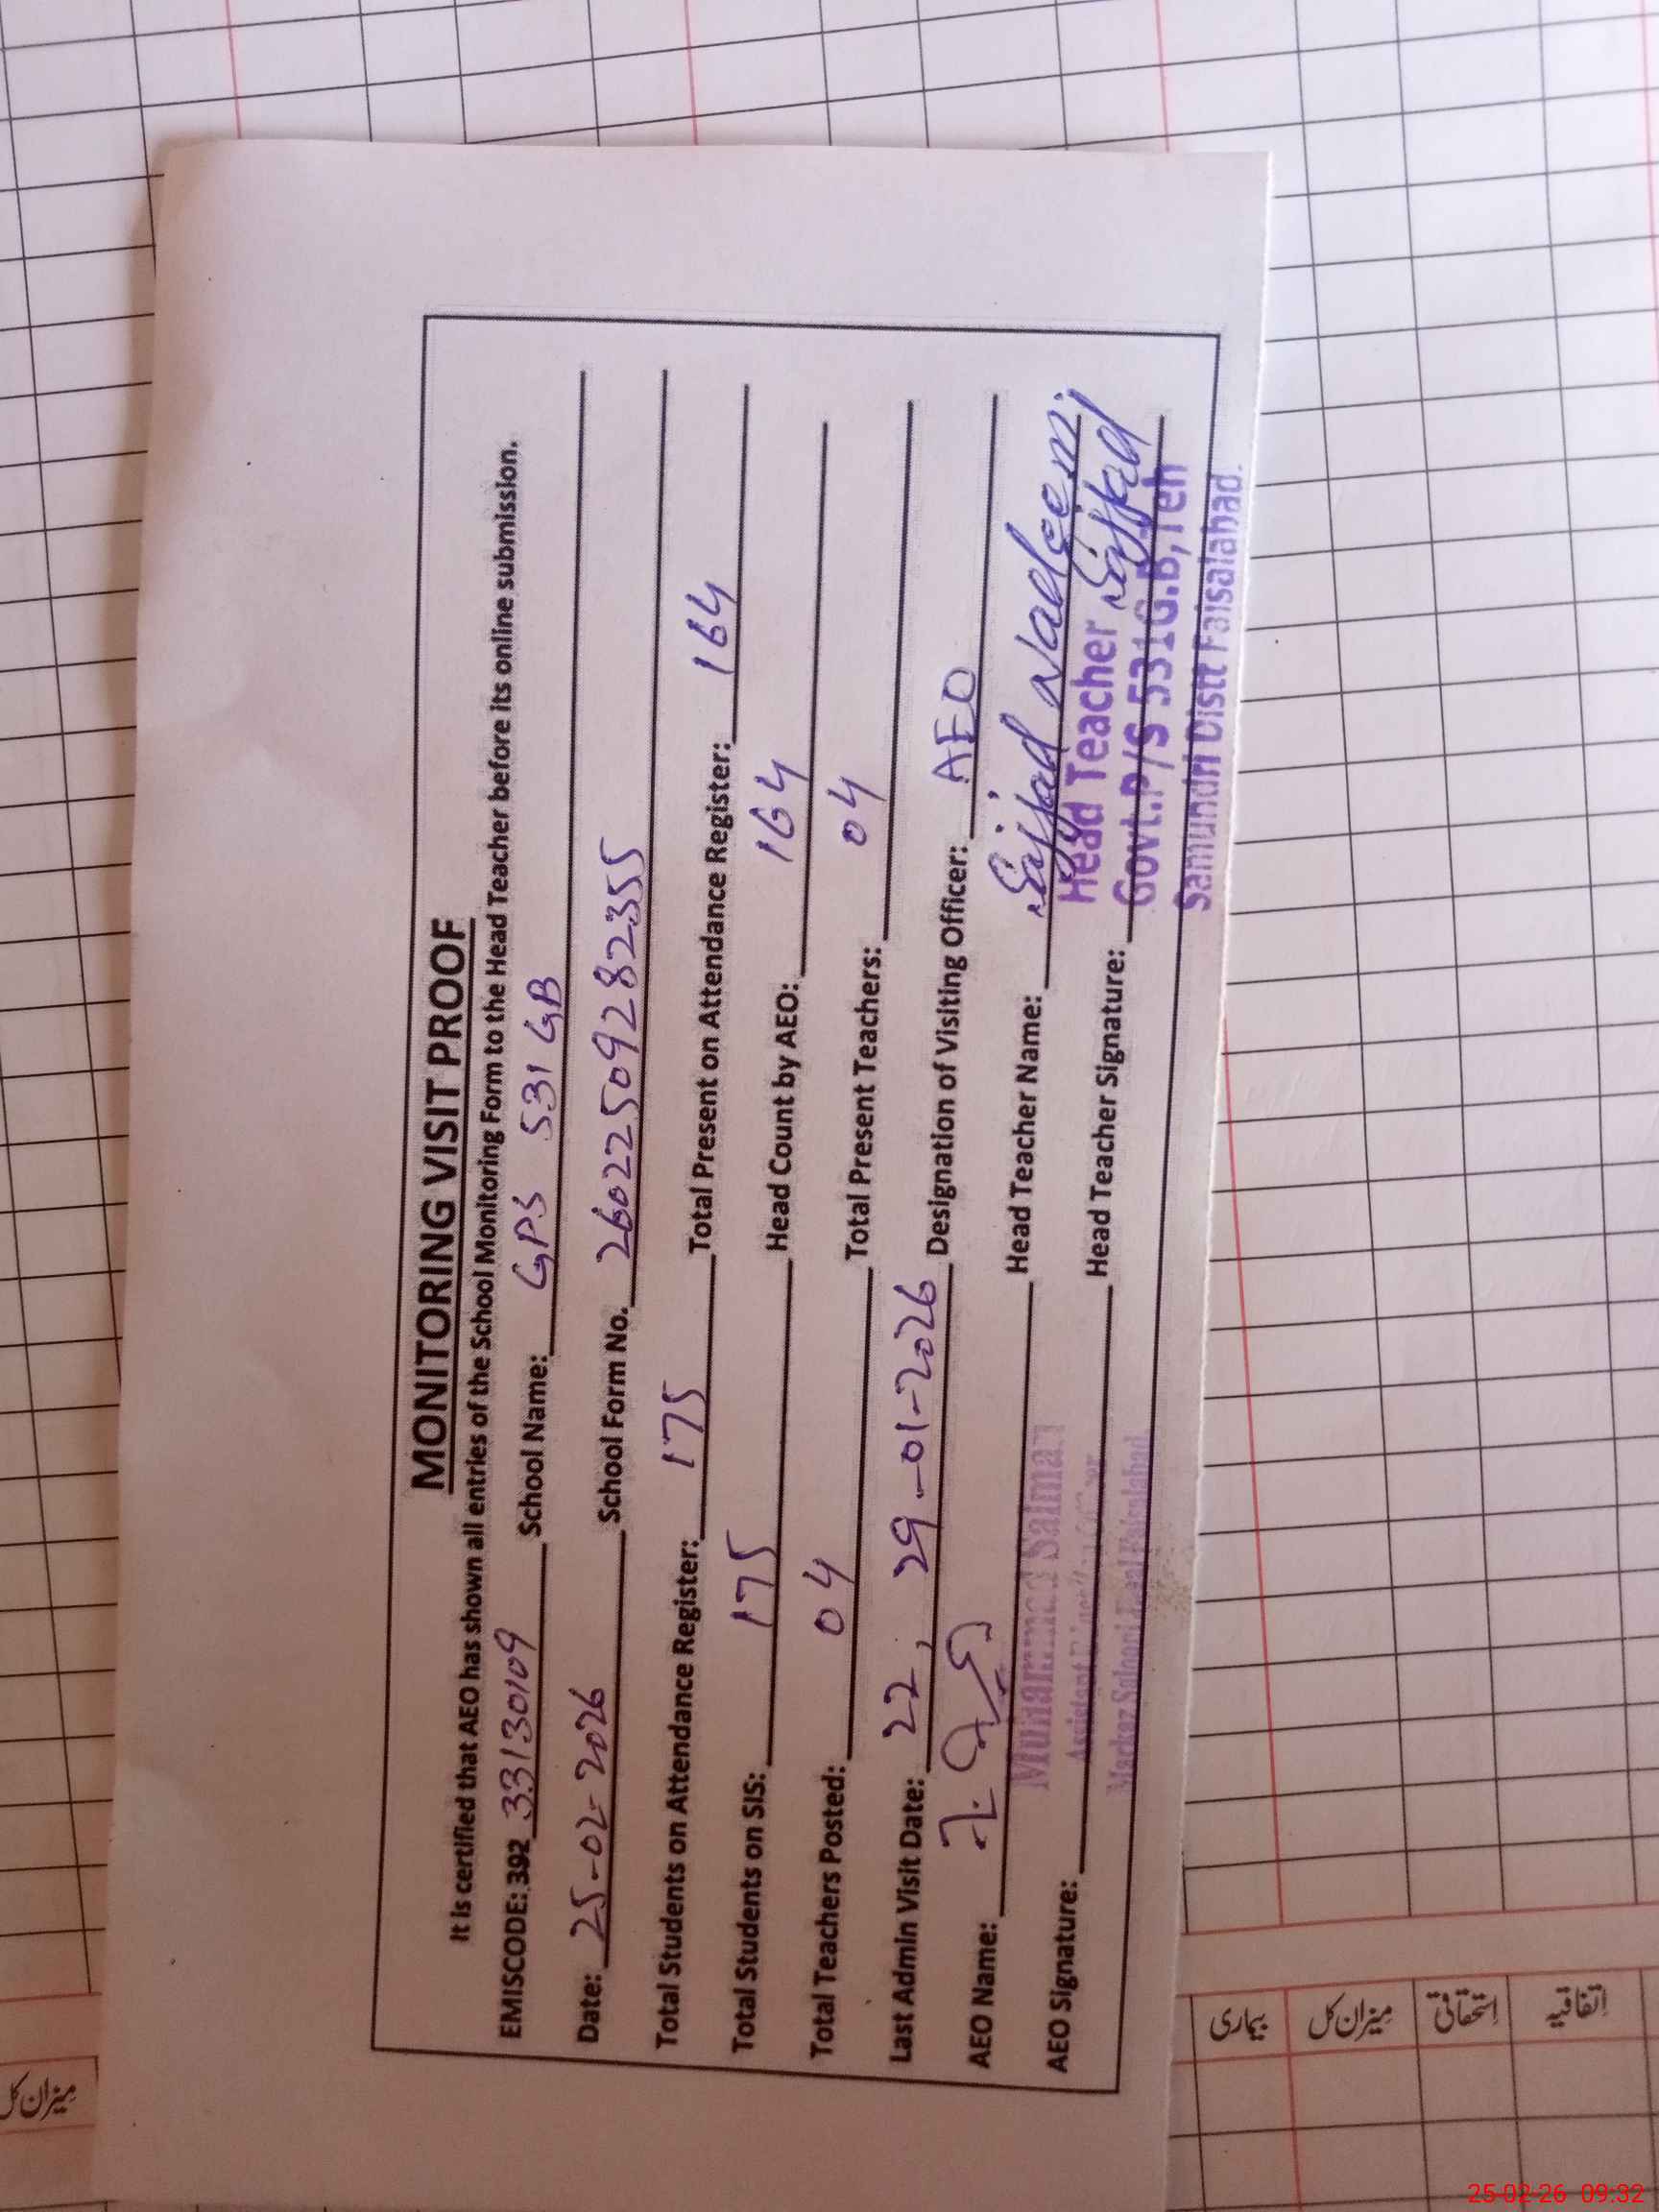 MONITORING VISIT PROOF
It is certified that AEO has shown all entries of the School Monitoring Form to the Head Teacher before its online submission.
EMISCODE: 392 33130109 School Name: GPS 531 GB
Date: 25-02-2026 School Form No. 26022509282355
Total Students on Attendance Register: 175 Total Present on Attendance Register: 164
Total Students on SIS: 175 Head Count by AEO: 164
Total Teachers Posted: 04 Total Present Teachers: 04
Last Admin Visit Date: 22, 29-01-2026 Designation of Visiting Officer: AEO
AEO Name: Head Teacher Name: Sajjad Nadeem
Muhammad Salman
Head Teacher
AEO Signature: Head Teacher Signature: Sajjad
Assistant
Govt.P/S 531G.B, Teh
Markaz Faisalabad.
Samundri Distt Faisalabad.
بیماری
میزان کل
استحقاقی
اتفاقیہ
میزان کل
25-02-26 09:32